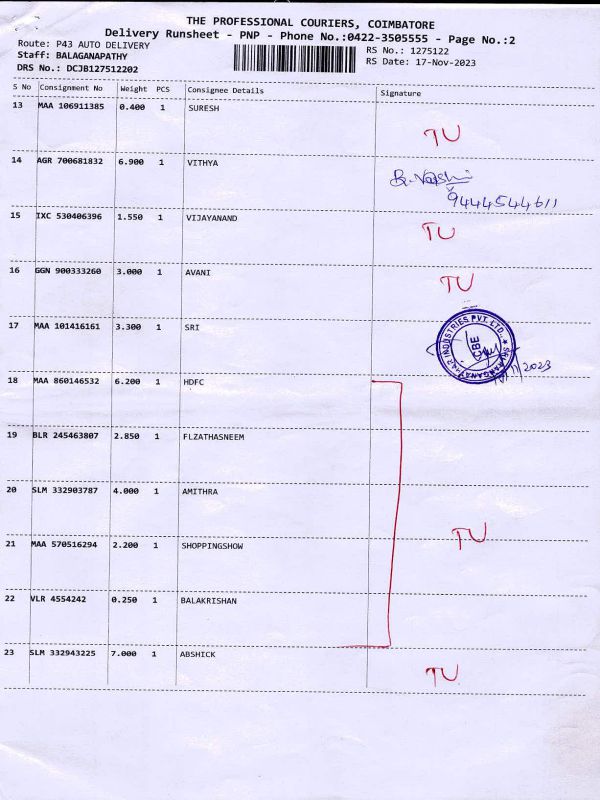 THE PROFESSIONAL COURIERS, COIMBATORE
Delivery Runsheet - PNP - Phone No.:0422-3505555 - Page No.:2
Route: P43 AUTO DELIVERY
RS No.: 1275122
Staff: BALAGANAPATHY
RS Date: 17-Nov-2023
DRS No.: DCJB127512202
S No Consignment No Weight PCS Consignee Details Signature
13 MAA 106911385 0.400 1 SURESH
TU
14 AGR 700681832 6.900 1 VITHYA
9444544611
15 IXC 530406396 1.550 1 VIJAYANAND
TU
16 GGN 900333260 3.000 1 AVANI
TU
17 MAA 101416161 3.300 1 SRI
INDUSTRIES PVT. LTD. CBE
2023
18 MAA 860146532 6.200 1 HDFC
19 BLR 245463807 2.850 1 FLZATHASNEEM
20 SLM 332903787 4.000 1 AMITHRA
TU
21 MAA 570516294 2.200 1 SHOPPINGSHOW
22 VLR 4554242 0.250 1 BALAKRISHAN
23 SLM 332943225 7.000 1 ABSHICK
TU